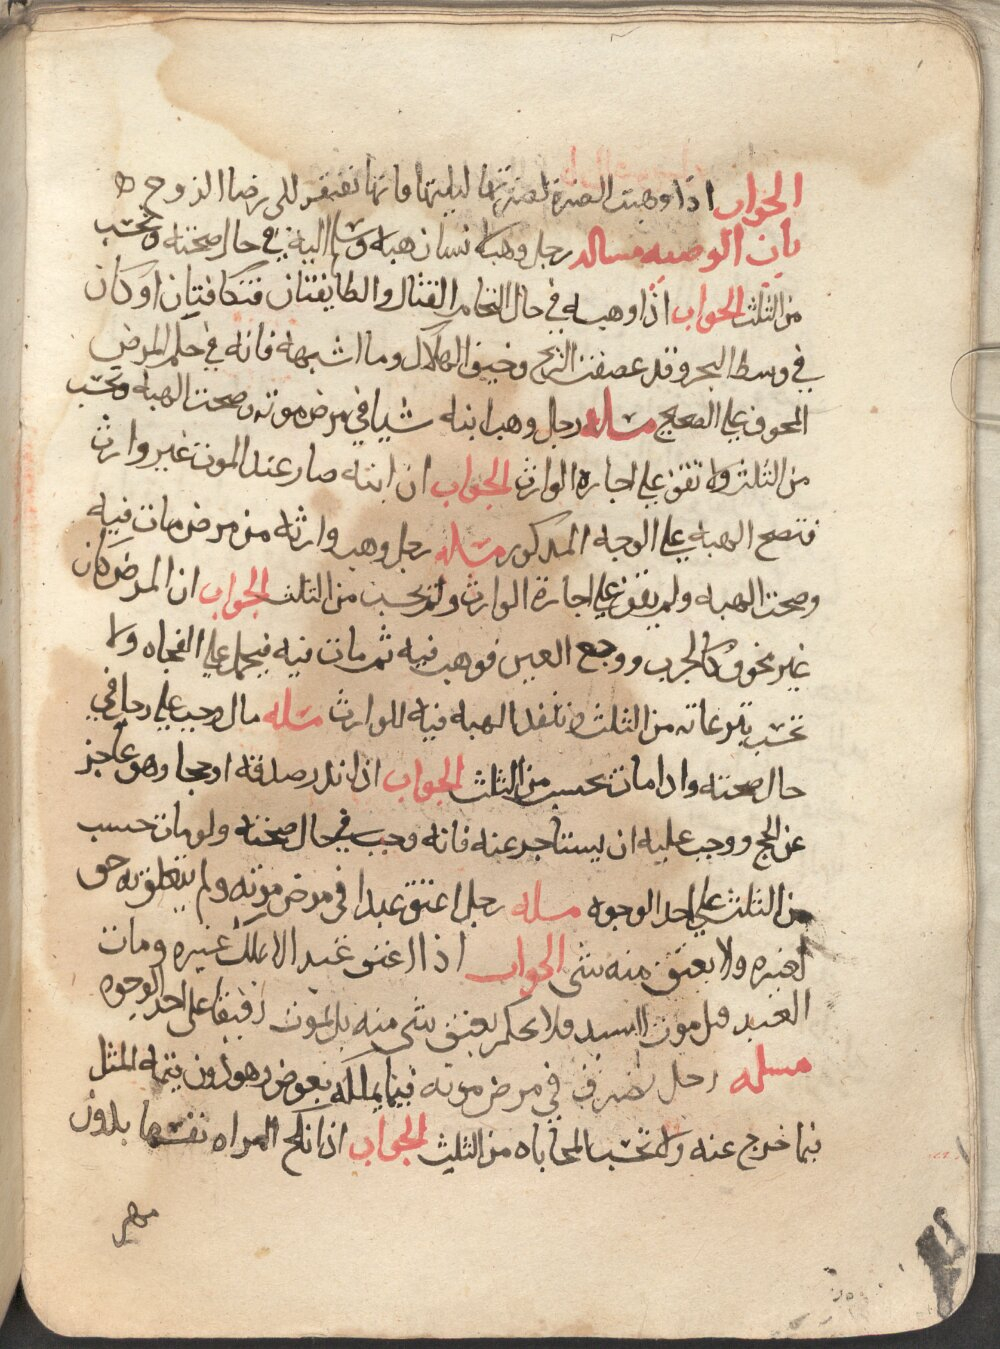 الجواب اذا وهبت الضرة لضرتها ليلتها فانها تفتقر الى رضا الزوج
باب الوصيه مساله رجل وهب لانسان هبه وسلم اليه في حال صحته وتحتسب
من الثلث الجواب اذا وهبه في حال التحام القتال والطايفتان متكافيتان او كان
في وسط البحر وقد عصفت الريح وخيف الهلاك وما اشبهه فانه في حكم المرض
المخوف على الصحيح مساله رجل وهب ابنه شيا في مرض موته وصحت الهبه وتحتسب
من الثلث ولا تقف على اجازه الوارث الجواب ان ابنه صار عند الموت غير وارث
فتصح الهبه على الوجه المذكور مسله رجل وهب وارثه من مرض مات فيه
وصحت الهبه ولم يقف على اجازة الوارث ولم تحسب من الثلث الجواب ان المرض كان
غير مخوف كالجرب ووجع العين فوهب فيه ثم مات فيه فيحمل على الفجاه ولا
تحتسب تبرعاته من الثلث وتنفذ الهبه فيه للوارث مسله مال وجب على رجل في
حال صحته واذا مات يحسب من الثلث الجواب اذا نذر صدقة او حجا وهو عاجز
عن الحج ووجب عليه ان يستاجر عنه فانه وجب في حال صحته ولو مات حسب
من الثلث على احد الوجوه مسله رجل اعتق عبدا في مرض موته ولم يتعلق به حق
لغيره ولا يعتق منه شى الجواب اذا اعتق عبدا لا يملك غيره ومات
العبد قبل موت السيد فلا يحكم بعتق شى منه بل يموت رقيقا على احد الوجوه
مسله رجل تصرف في مرض موته فيما يملكه بعوض هو دون قيمة المثل
فيما خرج عنه ولا تحتسب المحاباه من الثلث الجواب اذا نكح المراه نفسها بدون
مهر